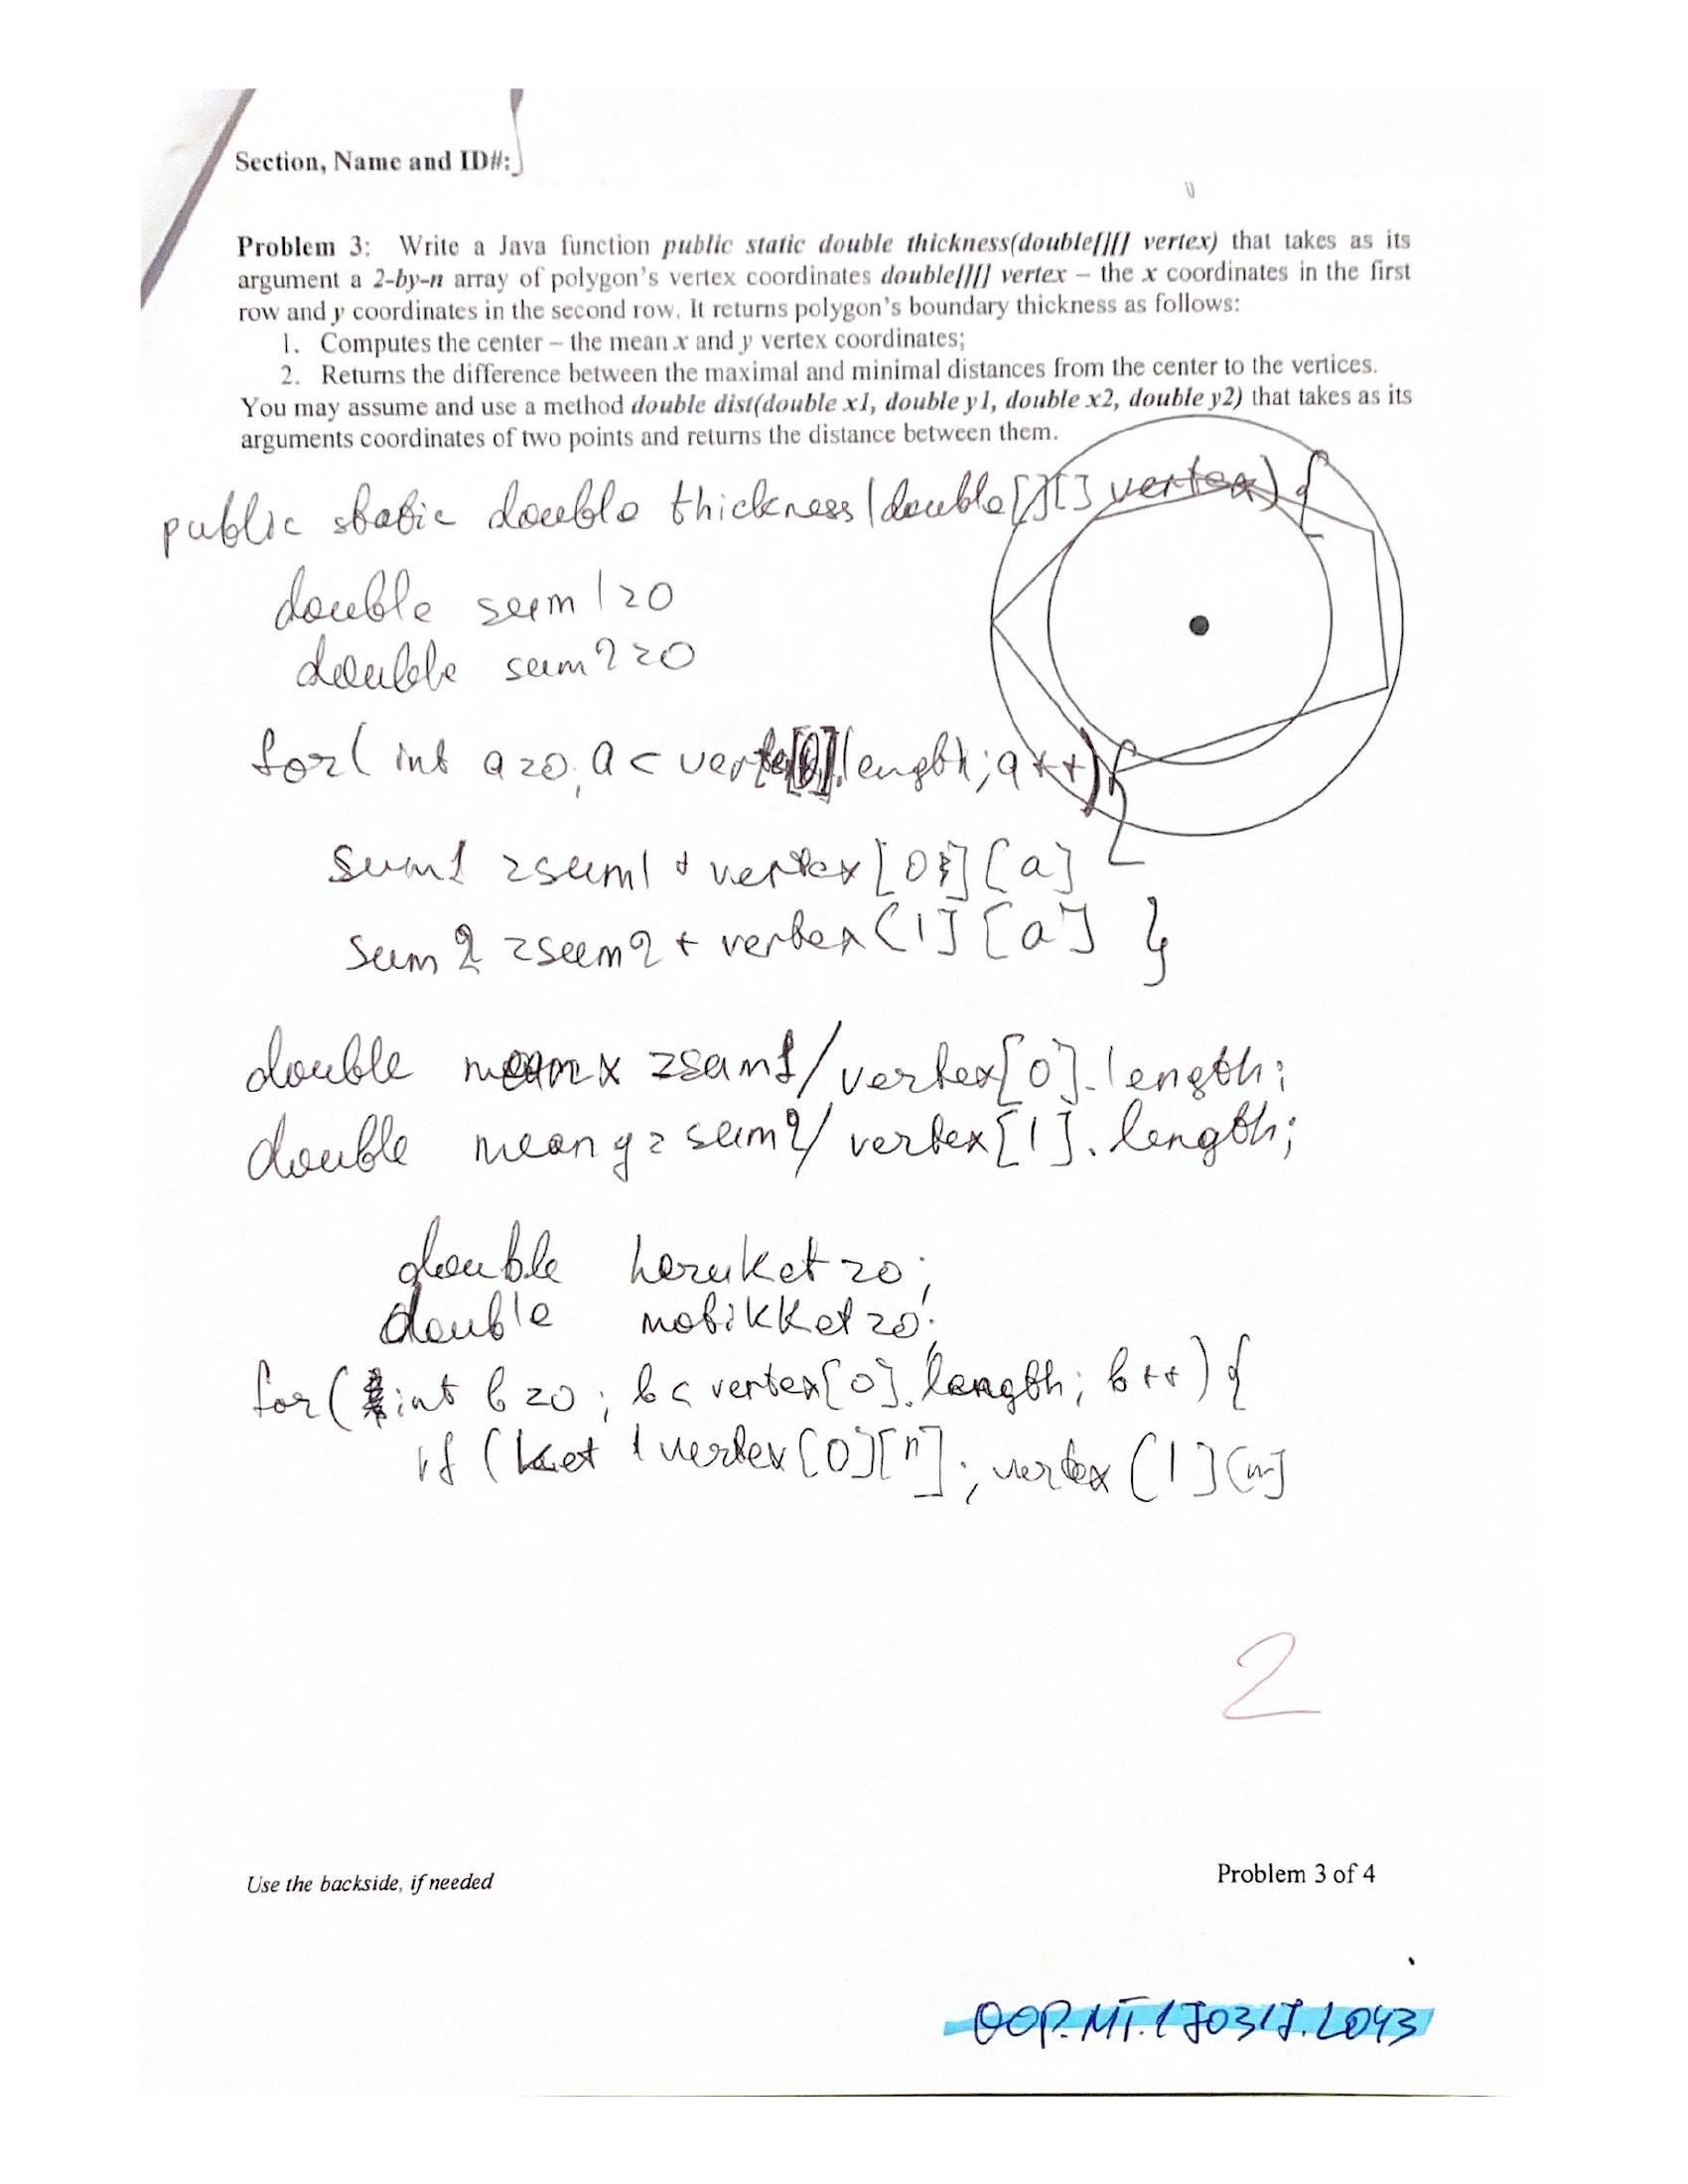 Section, Name and ID#:
Problem 3: Write a Java function public static double thickness(double[][] vertex) that takes as its
argument a 2-by-n array of polygon's vertex coordinates double[][] vertex – the x coordinates in the first
row and y coordinates in the second row. It returns polygon's boundary thickness as follows:
1. Computes the center – the mean x and y vertex coordinates;
2. Returns the difference between the maximal and minimal distances from the center to the vertices.
You may assume and use a method double dist(double x1, double y1, double x2, double y2) that takes as its
arguments coordinates of two points and returns the distance between them.
public static double thickness(double[][] vertex) {
double sum1=0
double sum2=0
for( int a=0; a < vertex[0].length; a++) {
sum1 =sum1 + vertex[0][a]
sum2 =sum2 + vertex[1][a] }
double meanx =sum1/vertex[0].length;
double meany=sum2/vertex[1].length;
double heruket=0;
double motikket=0;
for( int b=0; b< vertex[0].length; b++) {
if (ket ( vertex[0][n]; vertex[1][n]
2
Use the backside, if needed
Problem 3 of 4
OOP.MT.170317.L043